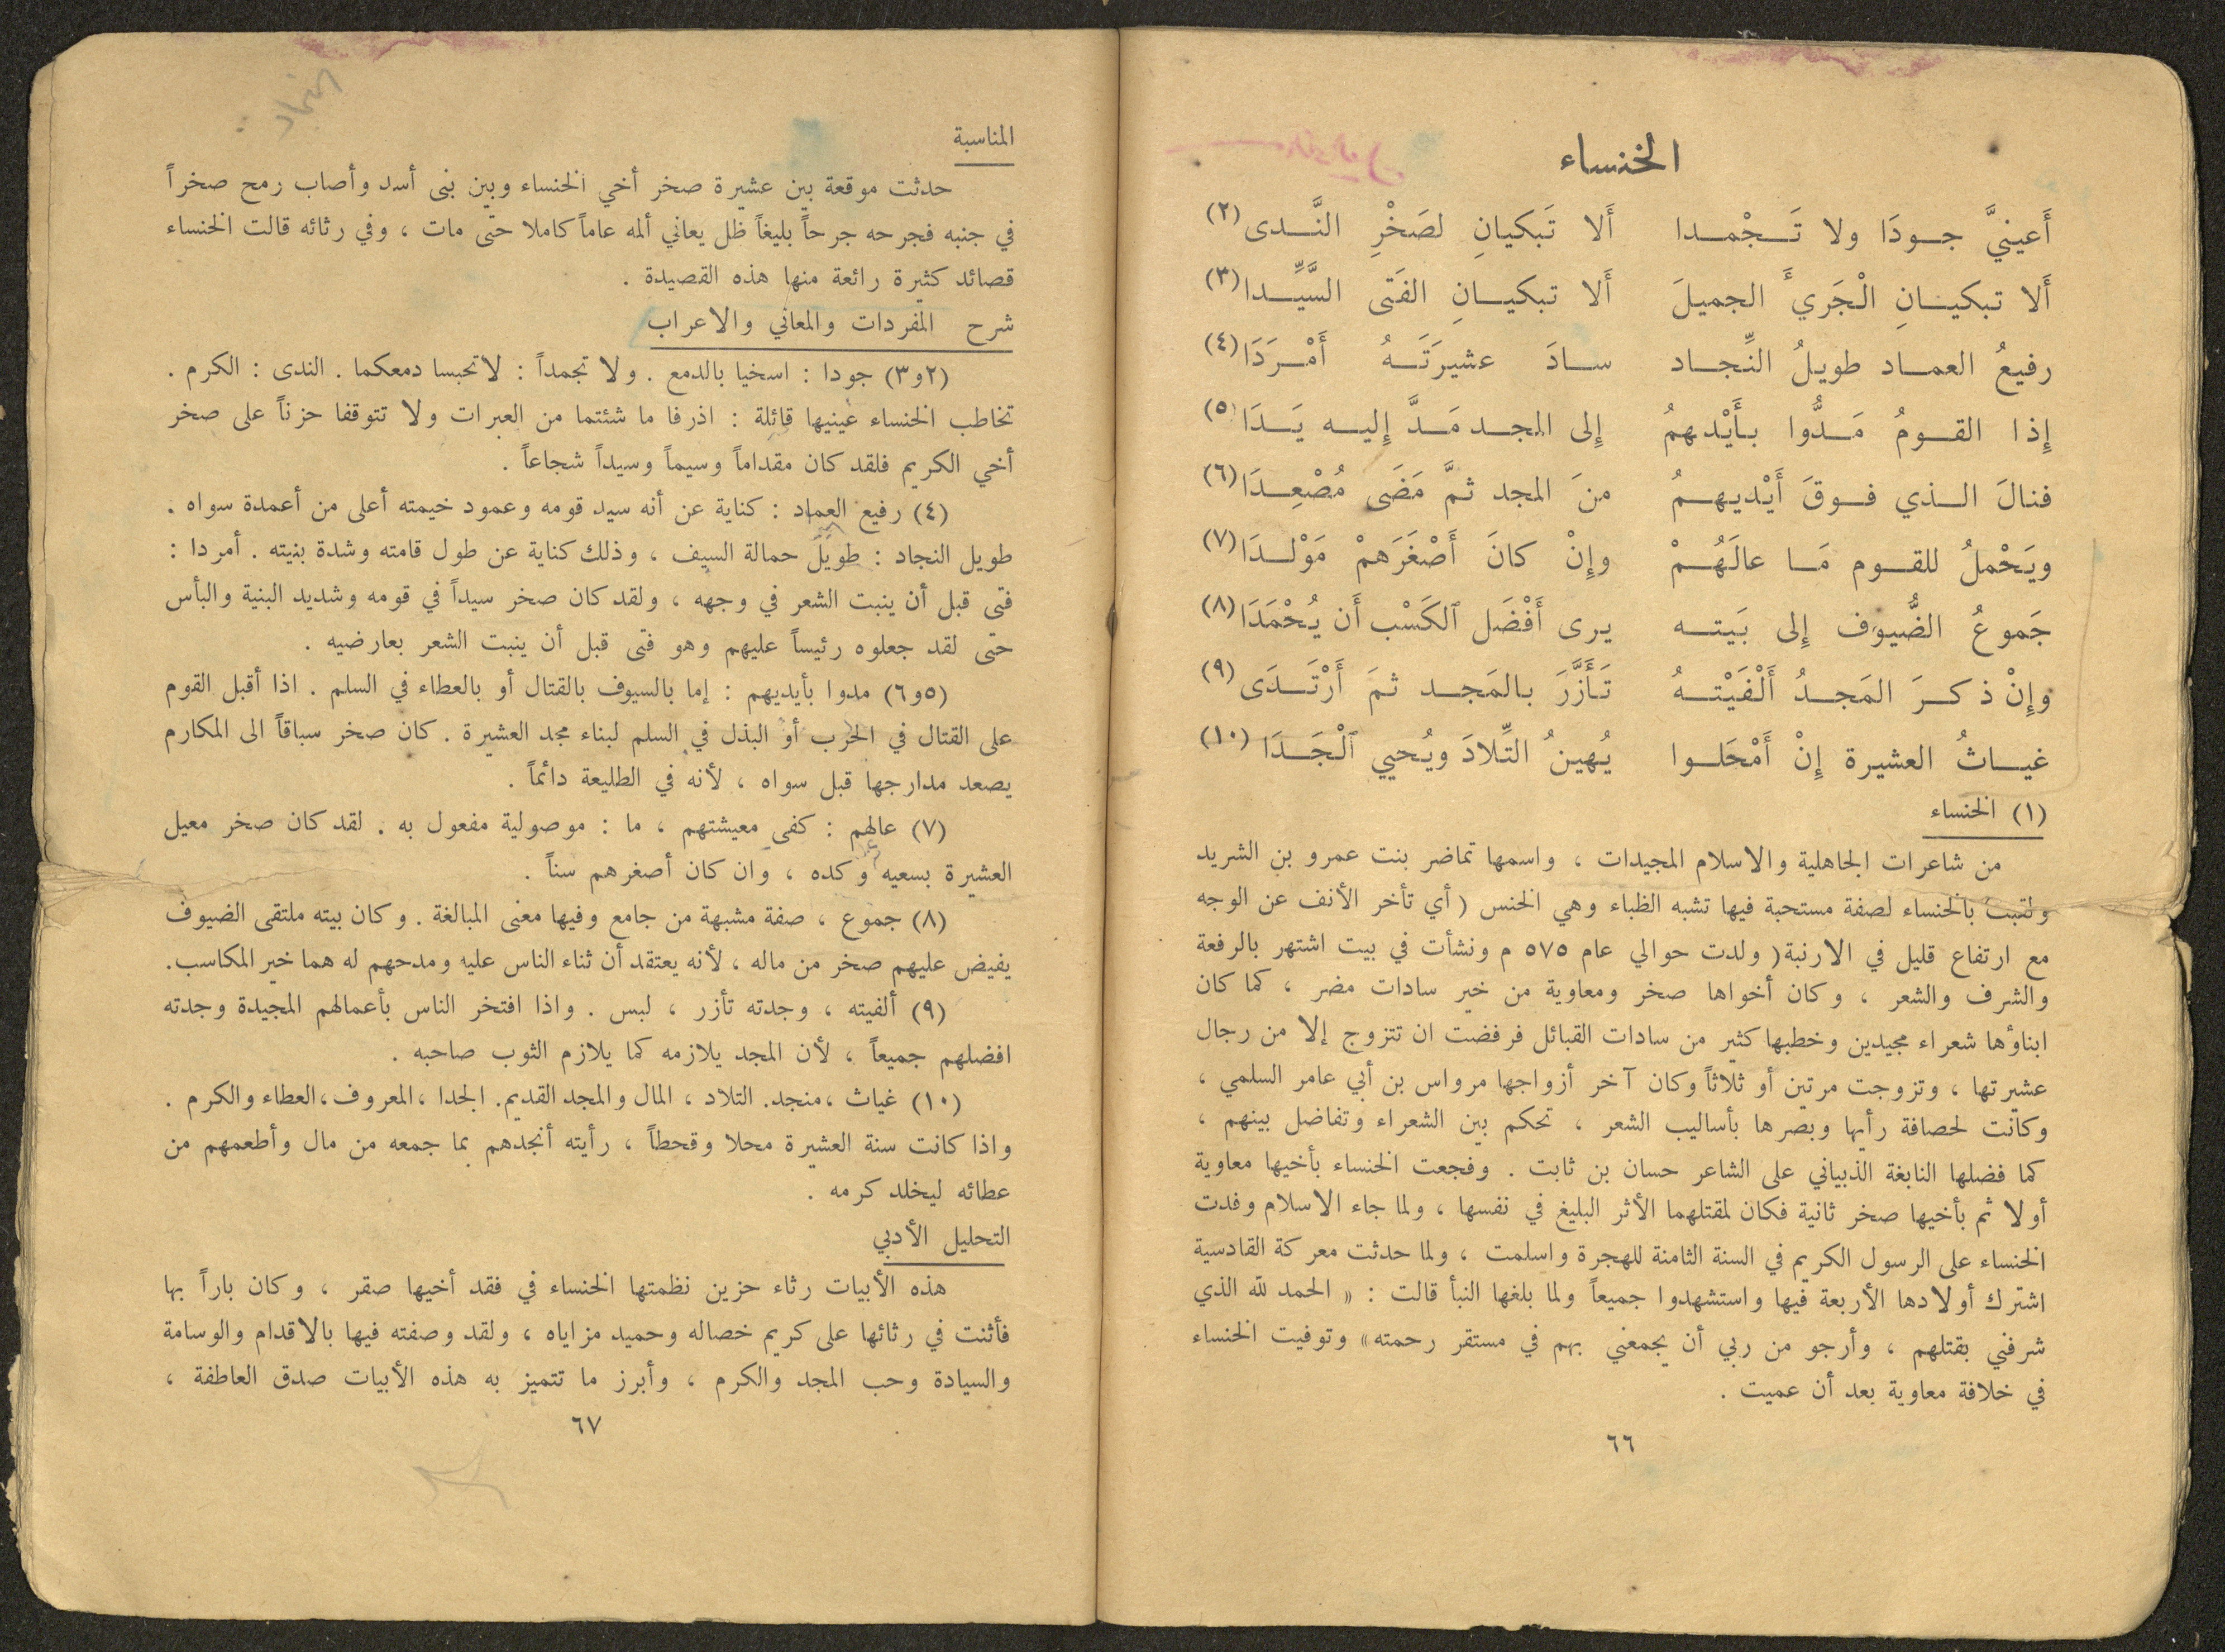 الخنساء
أَعينيَّ جــودَا ولا تَــجْمــدا أَلا تَبكيانِ لصَخْرِ النَّــدى (٢)
أَلا تبكيــانِ الْجَرئَ الجميلَ أَلا تبكيــانِ الفَتَى السَّيِّــدا (٣)
رفيعُ العمــاد طويلُ النِّجــاد ســادَ عشيرَتَــهُ أَمْــرَدَا (٤)
إِذا القــومُ مَــدُّوا بـأَيْدهمُ إِلى المجــد مَــدَّ إِليــه يَــدَا (٥)
فنالَ الــذي فــوقَ أَيْديهــمُ منَ المجد ثمَّ مَضَى مُصْعِــدَا (٦)
ويَحْملُ للقــوم مَــا عالَهُــمْ وإِنْ كانَ أَصْغَرَهمْ مَوْلــدَا (٧)
جَموعُ الضُّيوف إِلى بَيتــه يرى أَفْضَل ٱلكَسْب أَن يُحْمَدَا (٨)
وإِنْ ذكــرَ المَجــدُ أَلْفَيْتــهُ تَــأَزَّرَ بالمَجــد ثمَ أَرْتَــدَى (٩)
غيــاثُ العشيرة إِنْ أَمْحَلــوا يُهينُ التِّلادَ ويُحيي ٱلْجَــدَا (١٠)
(١) الخنساء
من شاعرات الجاهلية والاسلام المجيدات ، واسمها تماضر بنت عمرو بن الشريد
ولقبت بالخنساء لصفة مستحبة فيها تشبه الظباء وهي الخنس ( أي تأخر الأنف عن الوجه
مع ارتفاع قليل في الارنبة( ولدت حوالي عام ٥٧٥ م ونشأت في بيت اشتهر بالرفعة
والشرف والشعر ، وكان أخواها صخر ومعاوية من خير سادات مضر ، كما كان
ابناؤها شعراء مجيدين وخطبها كثير من سادات القبائل فرفضت ان تتزوج إلا من رجال
عشيرتها ، وتزوجت مرتين أو ثلاثاً وكان آخر أزواجها مرواس بن أبي عامر السلمي ،
وكانت لحصافة رأيها وبصرها بأساليب الشعر ، تحكم بين الشعراء وتفاضل بينهم ،
كما فضلها النابغة الذبياني على الشاعر حسان بن ثابت . وفجعت الخنساء بأخيها معاوية
أولا ثم بأخيها صخر ثانية فكان لمقتلهما الأثر البليغ في نفسها ، ولما جاء الاسلام وفدت
الخنساء على الرسول الكريم في السنة الثامنة للهجرة واسلمت ، ولما حدثت معركة القادسية
اشترك أولادها الأربعة فيها واستشهدوا جميعاً ولما بلغها النبأ قالت : « الحمد لله الذي
شرفني بقتلهم ، وأرجو من ربي أن يجمعني بهم في مستقر رحمته» وتوفيت الخنساء
في خلافة معاوية بعد أن عميت .
٦٦
المناسبة
حدثت موقعة بين عشيرة صخر أخي الخنساء وبين بنى أسد وأصاب رمح صخراً
في جنبه فجرحه جرحاً بليغاً ظل يعاني ألمه عاماً كاملا حتى مات ، وفي رثائه قالت الخنساء
قصائد كثيرة رائعة منها هذه القصيدة .
شرح المفردات والمعاني والاعراب
(٢و٣) جودا : اسخيا بالدمع . ولا تجمداً : لاتحبسا دمعكما . الندى : الكرم .
تخاطب الخنساء عينيها قائلة : اذرفا ما شئتما من العبرات ولا تتوقفا حزناً على صخر
أخي الكريم فلقد كان مقداماً وسيماً وسيداً شجاعاً .
(٤) رفيع العماد : كناية عن أنه سيد قومه وعمود خيمته أعلى من أعمدة سواه .
طويل النجاد : طويل حمالة السيف ، وذلك كناية عن طول قامته وشدة بنيته . أمردا :
فتى قبل أن ينبت الشعر في وجهه ، ولقد كان صخر سيداً في قومه وشديد البنية والبأس
حتى لقد جعلوه رئيساً عليهم وهو فتى قبل أن ينبت الشعر بعارضيه .
(٥و٦) مدوا بأيديهم : إما بالسيوف بالقتال أو بالعطاء في السلم . اذا أقبل القوم
على القتال في الحرب أو البذل في السلم لبناء مجد العشيرة . كان صخر سباقاً الى المكارم
يصعد مدارجها قبل سواه ، لأنه في الطليعة دائماً .
(٧) عالهم : كفى معيشتهم ، ما : موصولية مفعول به . لقد كان صخر معيل
العشيرة بسعيه وكده ، وان كان أصغرهم سناً .
(٨) جموع ، صفة مشبهة من جامع وفيها معنى المبالغة . وكان بيته ملتقى الضيوف
يفيض عليهم صخر من ماله ، لأنه يعتقد أن ثناء الناس عليه ومدحهم له هما خير المكاسب.
(٩) ألفيته ، وجدته تأزر ، لبس . واذا افتخر الناس بأعمالهم المجيدة وجدته
افضلهم جميعاً ، لأن المجد يلازمه كما يلازم الثوب صاحبه .
(١٠) غياث ،منجد. التلاد ، المال والمجد القديم. الجدا ،المعروف،العطاء والكرم .
واذا كانت سنة العشيرة محلا وقحطاً ، رأيته أنجدهم بما جمعه من مال وأطعمهم من
عطائه ليخلد كرمه .
التحليل الأدبي
هذه الأبيات رثاء حزين نظمتها الخنساء في فقد أخيها صقر ، وكان باراً بها
فأثنت في رثائها على كريم خصاله وحميد مزاياه ، ولقد وصفته فيها بالاقدام والوسامة
والسيادة وحب المجد والكرم ، وأبرز ما تتميز به هذه الأبيات صدق العاطفة ،
٦٧